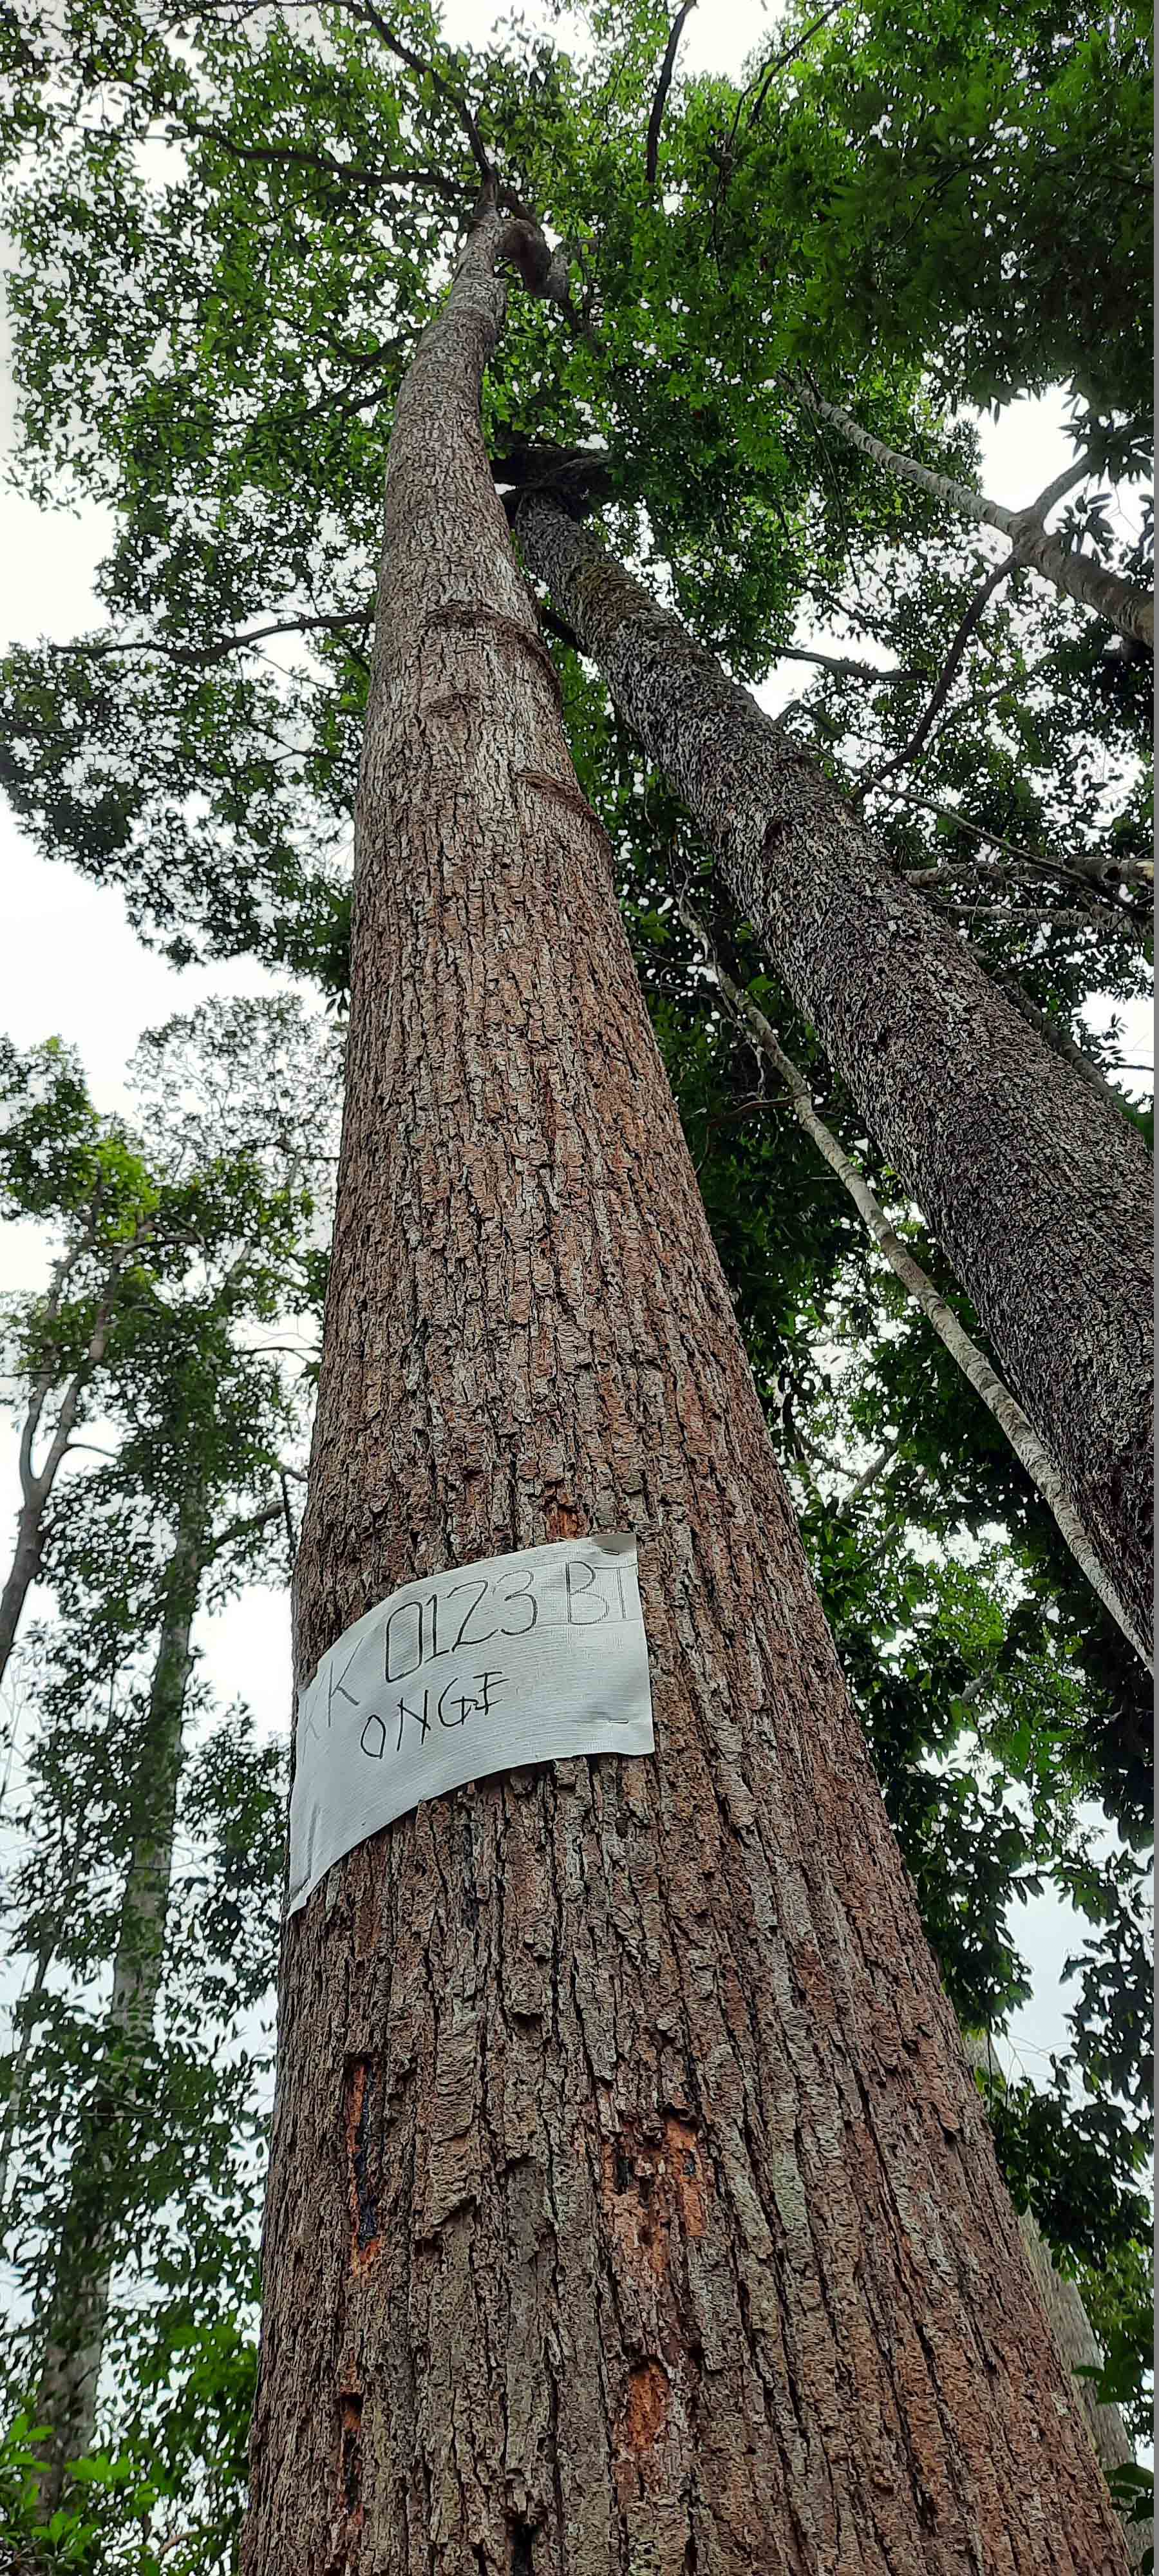 KK 0123 BT
ONGE